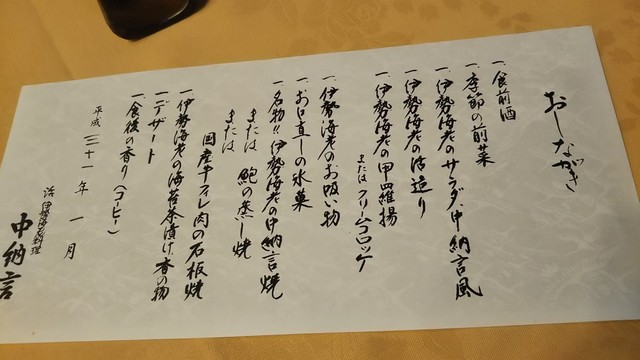 おしながき
一、食前酒
一、季節の前菜
一、伊勢海老のサラダ、中納言風
一、伊勢海老の活造り
一、伊勢海老の甲羅揚
または クリームコロッケ
一、伊勢海老のお吸い物
一、お口直しの氷菓
一、名物!!伊勢海老の中納言焼
または 鮑の蒸し焼
または
国産牛フィレ肉の石板焼
一、伊勢海老の海苔茶漬け、香の物
一、デザート
一、食後の香り(コーヒー)
平成 三十一 年 一 月
活伊勢海老料理
中納言